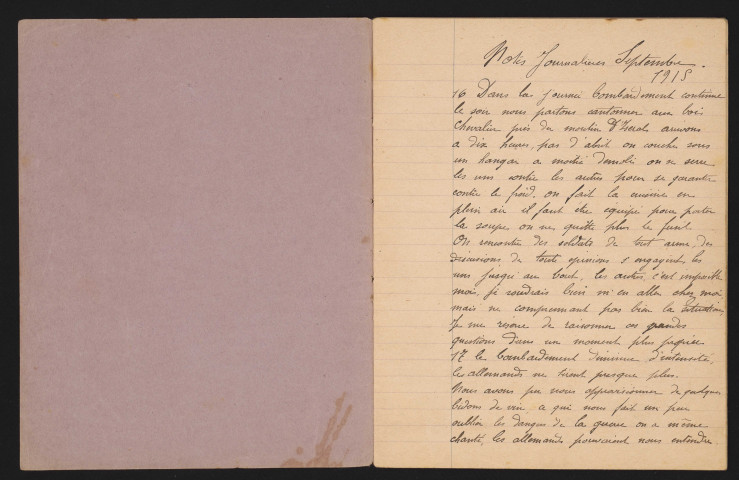 Notes Journalieres Septembre
1915
16 Dans la journée bombardement continue
le soir nous partons cantonner aux bois
Chevalier près du moulin d'
a dix heures, pas d'abri on couche sous
un hangar a moitié demoli on se serre
les uns contre les autres pour se garantir
contre le froid. on fait la cuisine en
plein air il faut être equipé pour porter
la soupe on ne quitte plus le fusil
On rencontre des soldats de tout arme, des
discusions de toute opinions s'engagent, les
uns jusqu'au bout, les autres, c'est impossible
moi, je voudrais bien m'en aller chez moi
mais ne comprenant pas bien la situation
Je me reserve de raisonner ces grandes
questions dans un moment plus propice
17 le bombardement diminue d'intensité,
les allemands ne tirent presque plus.
Nous avons pu nous approvisionner de quelques
bidons de vin, ce qui nous fait un peu
oublier les dangers de la guerre on a même
chanté, les allemands pouvaient nous entendre.